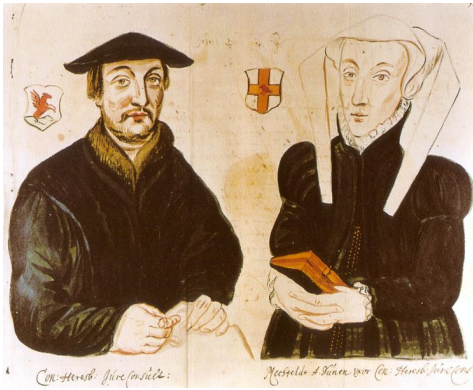 Con: Heresb: Jure Consult:
Mechteldt A Dunen uxor Con: Heresb: Jure